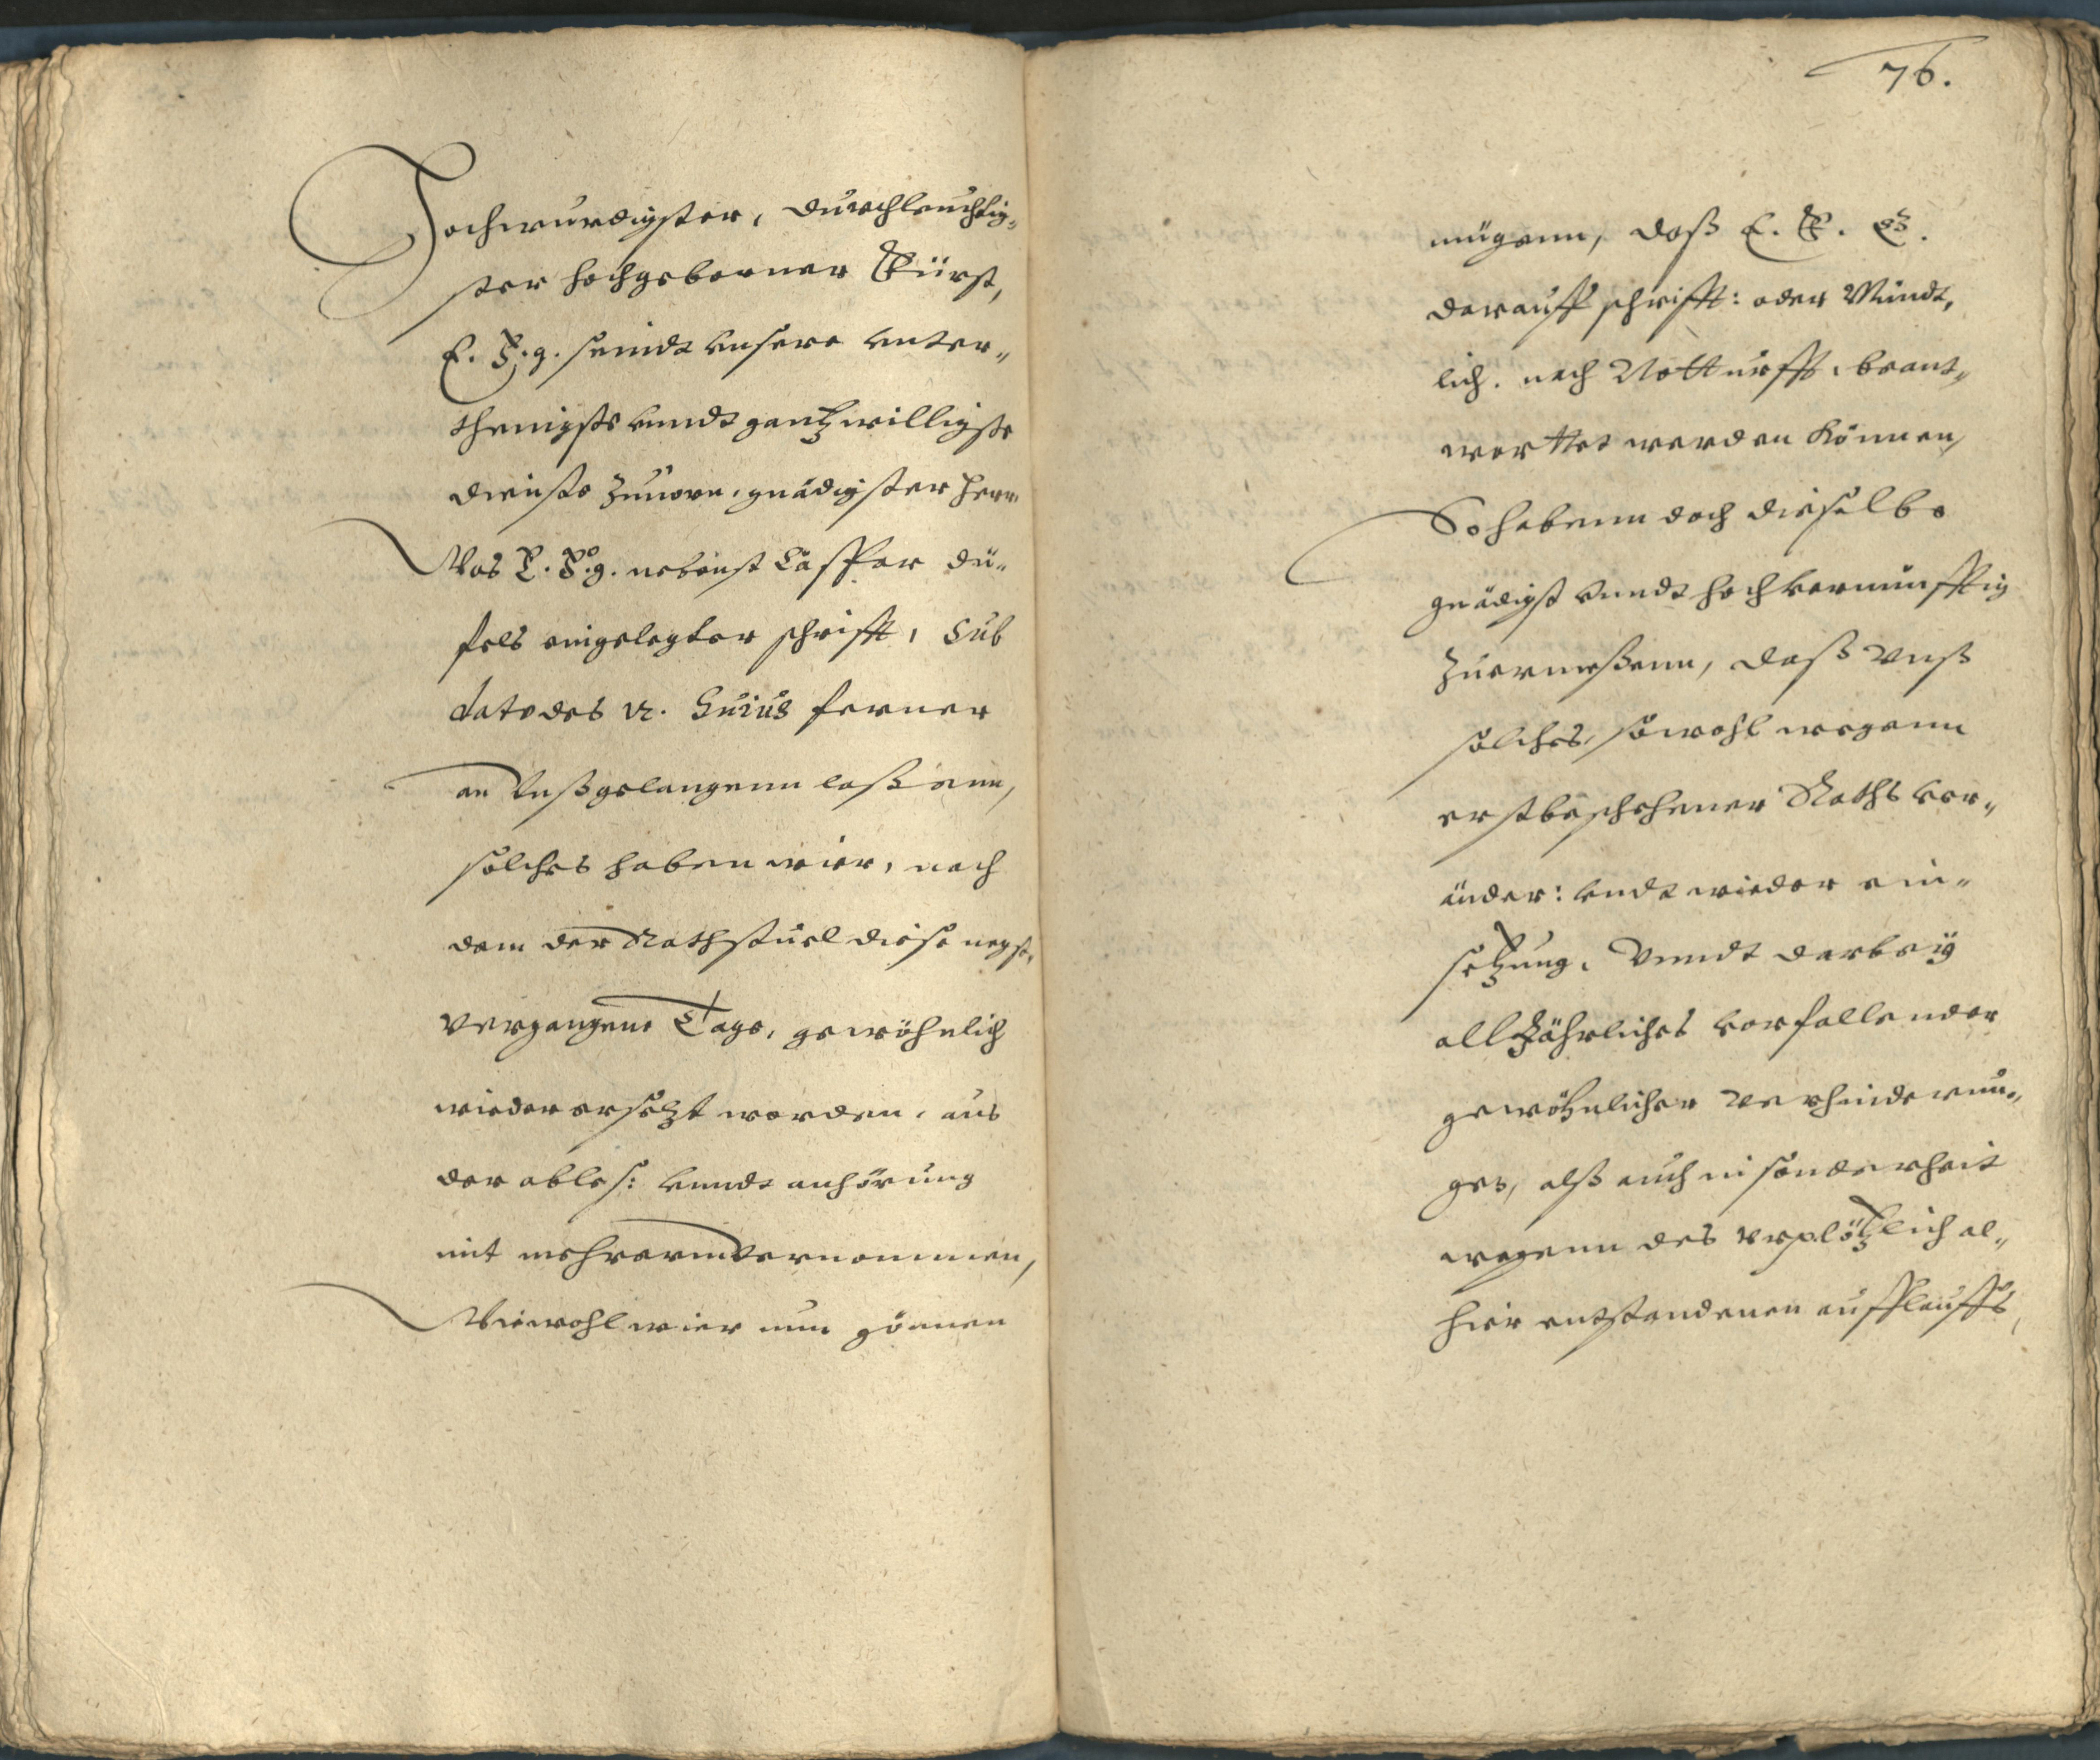 Hochwurdigster, Durchleuchtig-
ster hochgeborner Fürst,
E. F. g. seindt Unsere unter-
thenigste unndt gantz willigste
dienste zuuorn, gnädigster Herr
Was E. F. g. nebenst Caspar Dü-
fels eingelegter schrifft, sub
dato des 12. Huius ferner
an Unß gelangenn laßenn,
solches haben wier, nach
dem der Rathstuel diese negst,
vergangene Tage, gewöhnlich
wieder ersetzt worden, aus
der ables: unndt anhörung
mit mehrerm vernommen,
Wiewohl wier nun gönnen
76.
mügenn, daß E. F. G.
darauff schrifft: oder Mündt,
lich. nach Notturfft, beant-
worttet werden können,
So habenn doch dieselbe
gnädigst unndt hochvernünfftig
zuermeßenn, daß Unß
solches, sowohl wegenn
erstbeschehener Raths ver-
änder: undt wieder ein-
setzung, Vnndt darbeÿ
all Jährliches vorfallender
gewöhnlicher Verhinderun-
ges, alß auch in sonderheit
wegenn des vrplötzlich al-
hier entstandenen aufflauffs,